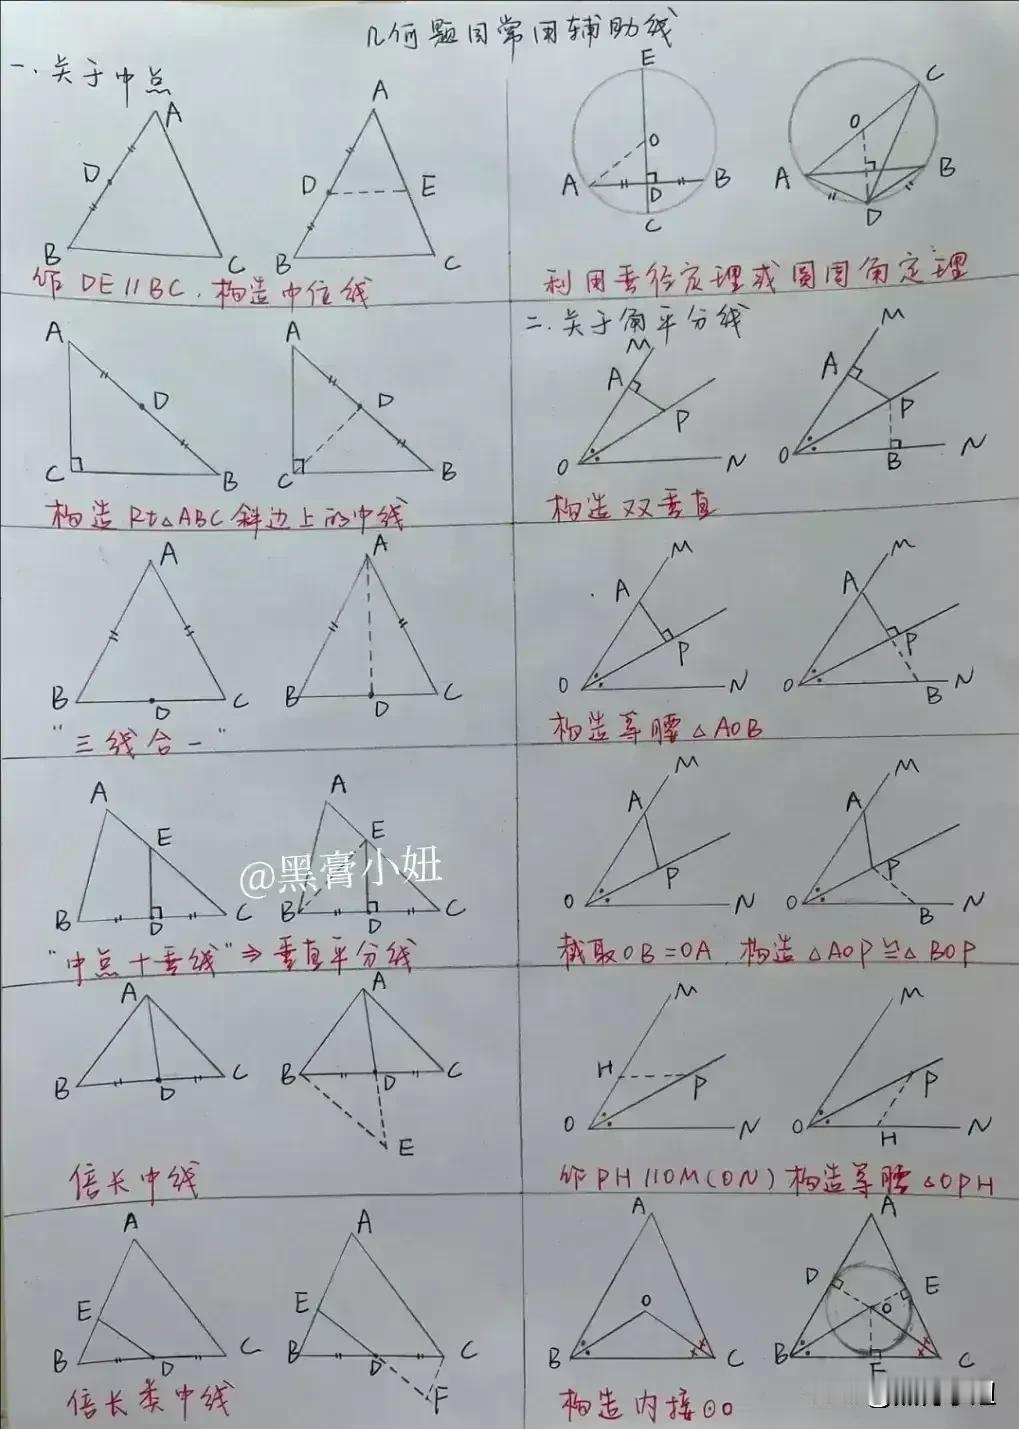 几何题目常用辅助线
一.关于中点
A
D
B
C
A
D
E
B
C
作DE//BC.构造中位线
E
O
A
B
D
C
C
O
A
B
D
利用垂径定理或圆周角定理
A
D
C
B
A
D
C
B
构造Rt△ABC斜边上的中线
二.关于角平分线
M
A
P
O
N
M
A
P
O
B
N
构造双垂直
A
B
D
C
A
B
D
C
"三线合一"
M
A
P
O
N
M
A
P
O
B
N
构造等腰△AOB
A
E
B
D
C
A
E
B
D
C
@黑膏小妞
"中点+垂线"⇒垂直平分线
M
A
P
O
N
M
A
P
O
B
N
截取OB=OA.构造△AOP≌△BOP
A
B
D
C
A
B
D
C
E
倍长中线
M
H
P
O
N
M
P
O
H
N
作PH//OM(ON)构造等腰△OPH
A
E
B
D
C
A
E
B
D
C
F
倍长类中线
A
O
B
C
A
D
E
O
B
F
C
构造内接⊙O